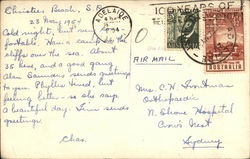 Christies Beach, S.A.
23 May 1954
Cold night, but very
fortable. Have a camp on the
cliffs over the sea. About
35 here, and a good gang.
Alan Saunders sends greetings
to you. Phyllis tired, but
feeling better - so she says.
A beautiful day. Jim sends
greetings.
Chas.
ADELAIDE
100 YEARS OF
AIR MAIL
AUSTRALIA
Mrs. C. H.
Orthopaedic
N. Shore Hospital
Crow's Nest
Sydney